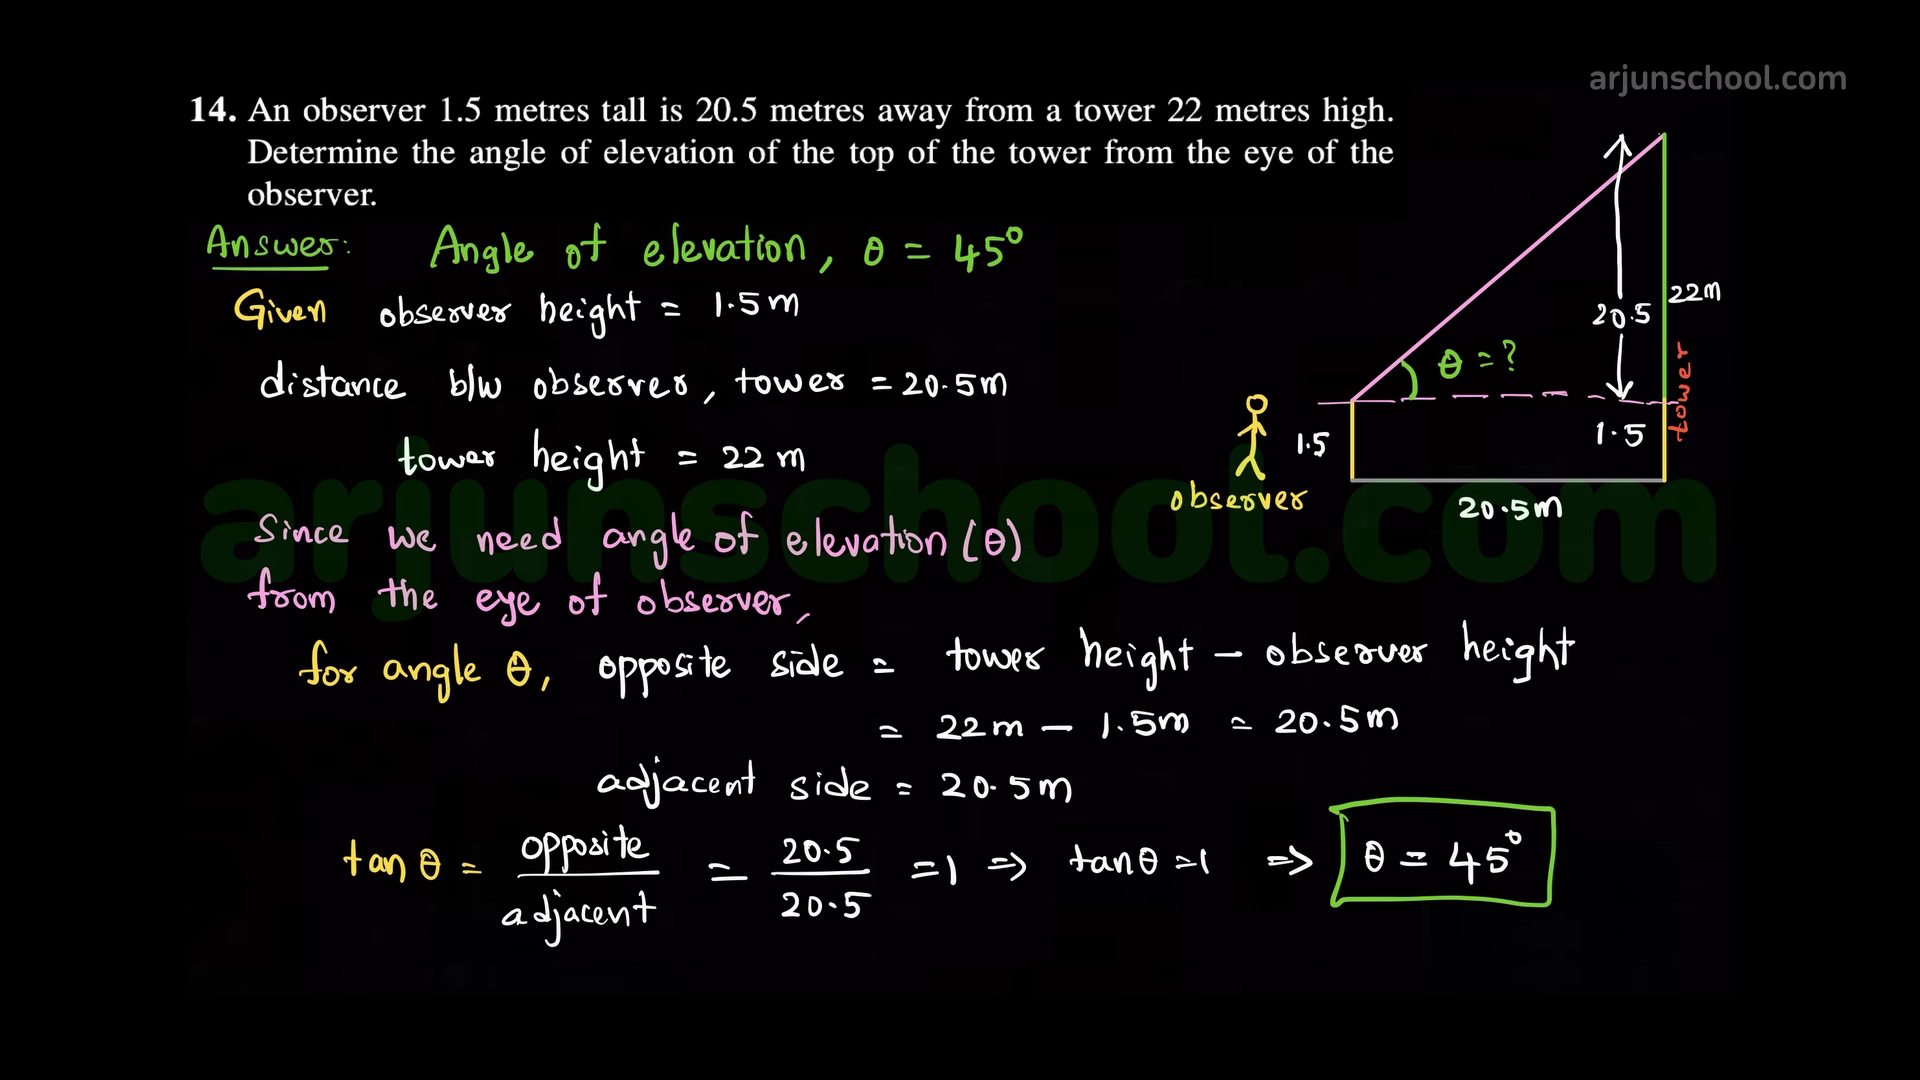 arjunschool.com
14. An observer 1.5 metres tall is 20.5 metres away from a tower 22 metres high.
Determine the angle of elevation of the top of the tower from the eye of the
observer.
Answer: Angle of elevation, θ = 45°
Given observer height = 1.5m
distance b/w observer, tower = 20.5m
tower height = 22 m
Since we need angle of elevation (θ)
from the eye of observer,
for angle θ, opposite side = tower height - observer height
= 22m - 1.5m = 20.5m
adjacent side = 20.5m
tan θ = opposite / adjacent = 20.5 / 20.5 = 1 ⇒ tanθ = 1 ⇒ θ = 45°
22m
20.5
θ = ?
tower
1.5
1.5
observer
20.5m
arjunschool.com